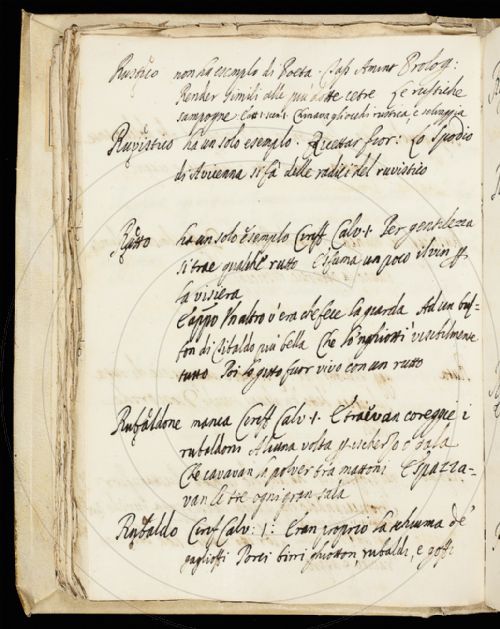 Rustico non ha esemplo di Poeta. Tass. Amint Prolog:
Render simili alle più dotte cetre Le rustiche
sampogne
Ruvistico ha un solo esemplo. Ricettar fior: Lo spodio
di Avicenna si fa delle radici del ruvistico
Rutto ha un solo esemplo Ciriff Calv. 1. Per gentilezza
si trae qualche rutto E sfuma un poco il vin
la visiera
E appo un altro v'era che fece la guarda Ad un buf-
fon di Ribaldo più bella Che lo 'nghiotti visibilmente
tutto Poi lo gitto fuor vivo con un rutto
Rubaldone manca Ciriff Calv. 1. E traevan coregge i
rubaldoni Alcuna volta
Che cavavan la polver tra mattoni E spazza-
van le tre ogni gran sala
Rubaldo Cirif Calv: 1: Eran proprio la schiuma de'
gaglioffi birri ghiotton, rubaldi, e goffi